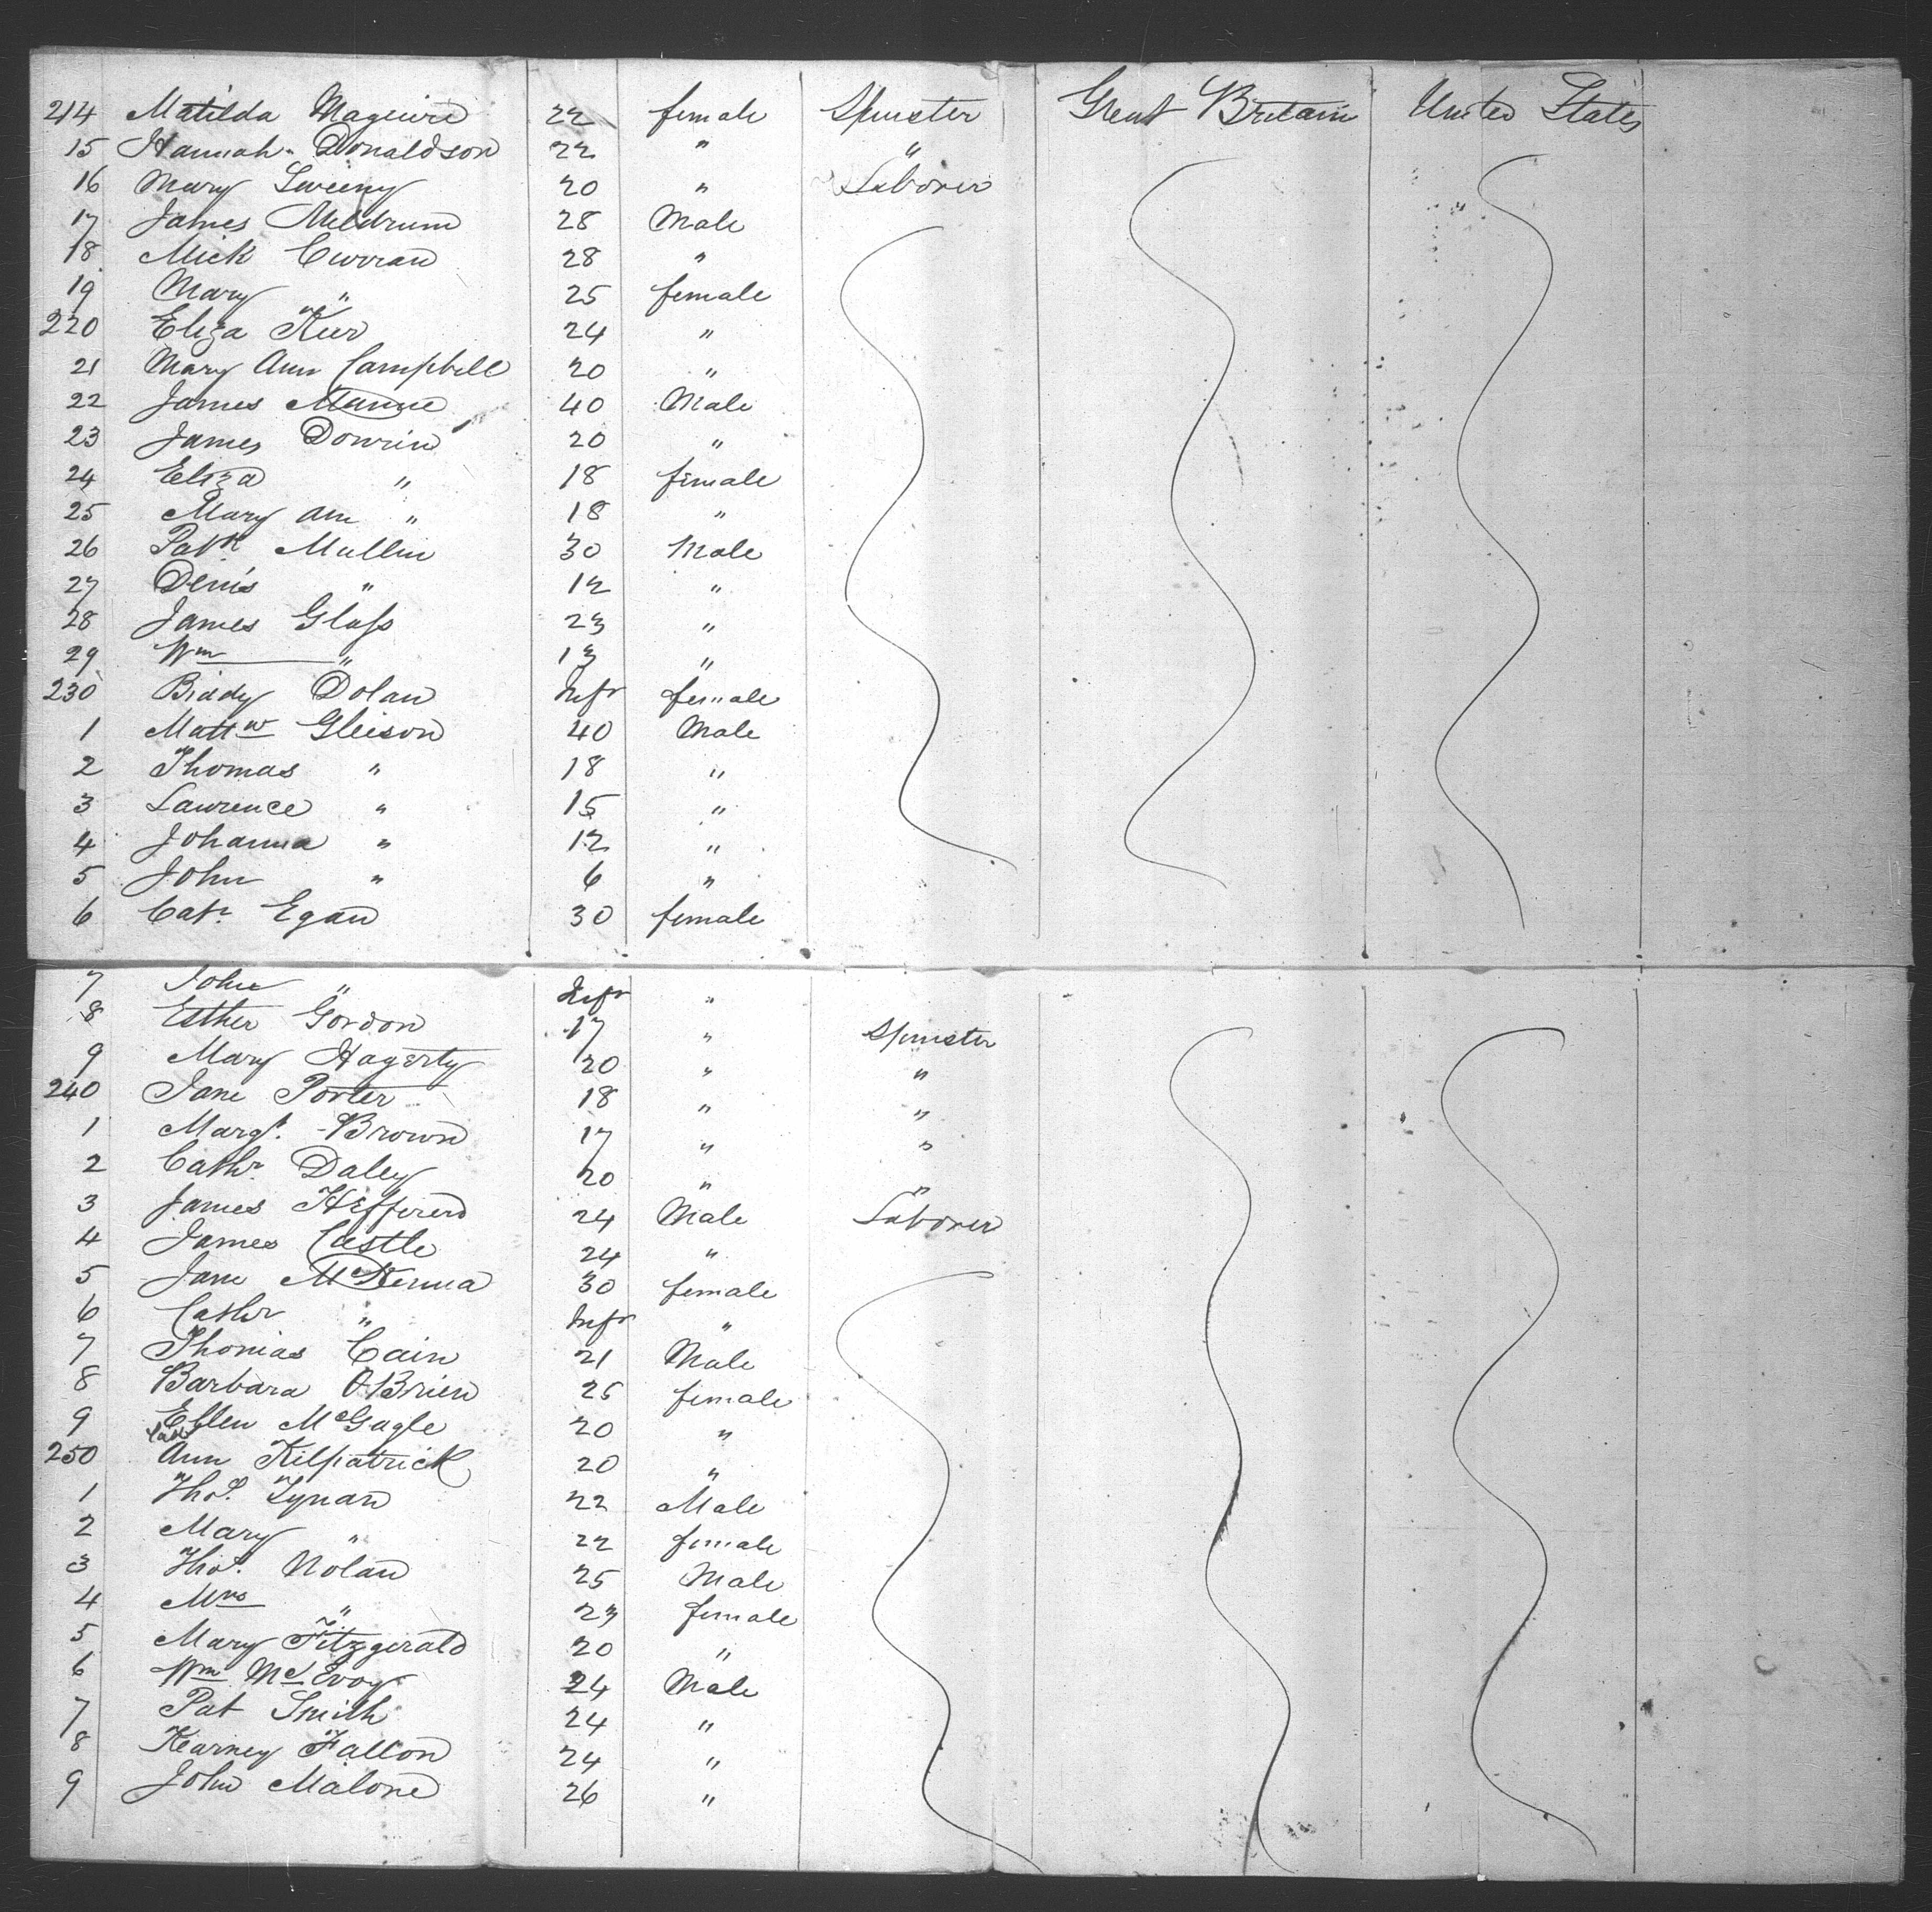 214 Matilda Maguire 22 female Spinster Great Britain United States
15 Hannah Donaldson 22 " "
16 Mary Sweeny 20 " Laborer
17 James Meldrum 28 Male
18 Mick Curran 28 "
19 Mary " 25 female
220 Eliza Keer 24 "
21 Mary Ann Campbell 20 "
22 James 40 Male
23 James 20 "
24 Eliza " 18 female
25 Mary Ann " 18 "
26 Patk Mullin 30 Male
27 Denis " 12 "
28 James Glass 23 "
29 Wm " 13 "
230 Biddy Dolan Inft female
1 Mattw Gleison 40 Male
2 Thomas " 18 "
3 Lawrence " 15 "
4 Johanna " 12 "
5 John " 6 "
6 Cath. Egan 30 female
7 John " Inft "
8 Esther Gordon 17 " Spinster
9 Mary Hagerty 20 " "
240 Jane Porter 18 " "
1 Margt. Brown 17 " "
2 Cathr Daley 20 " "
3 James Heffirend 24 Male Laborer
4 James Castle 24 "
5 Jane McKenna 30 female
6 Cathr " Inft "
7 Thomas Cain 21 Male
8 Barbara OBrien 25 female
9 Ellen McGagle 20 "
250 Ann Kilpatrick 20 "
1 Thos. Tynan 22 Male
2 Mary " 22 female
3 Thos. Nolan 25 Male
4 Mrs " 23 female
5 Mary Fitzgerald 20 "
6 Wm McEvoy 24 Male
7 Pat Smith 24 "
8 Kearney Fallon 24 "
9 John Malone 26 "